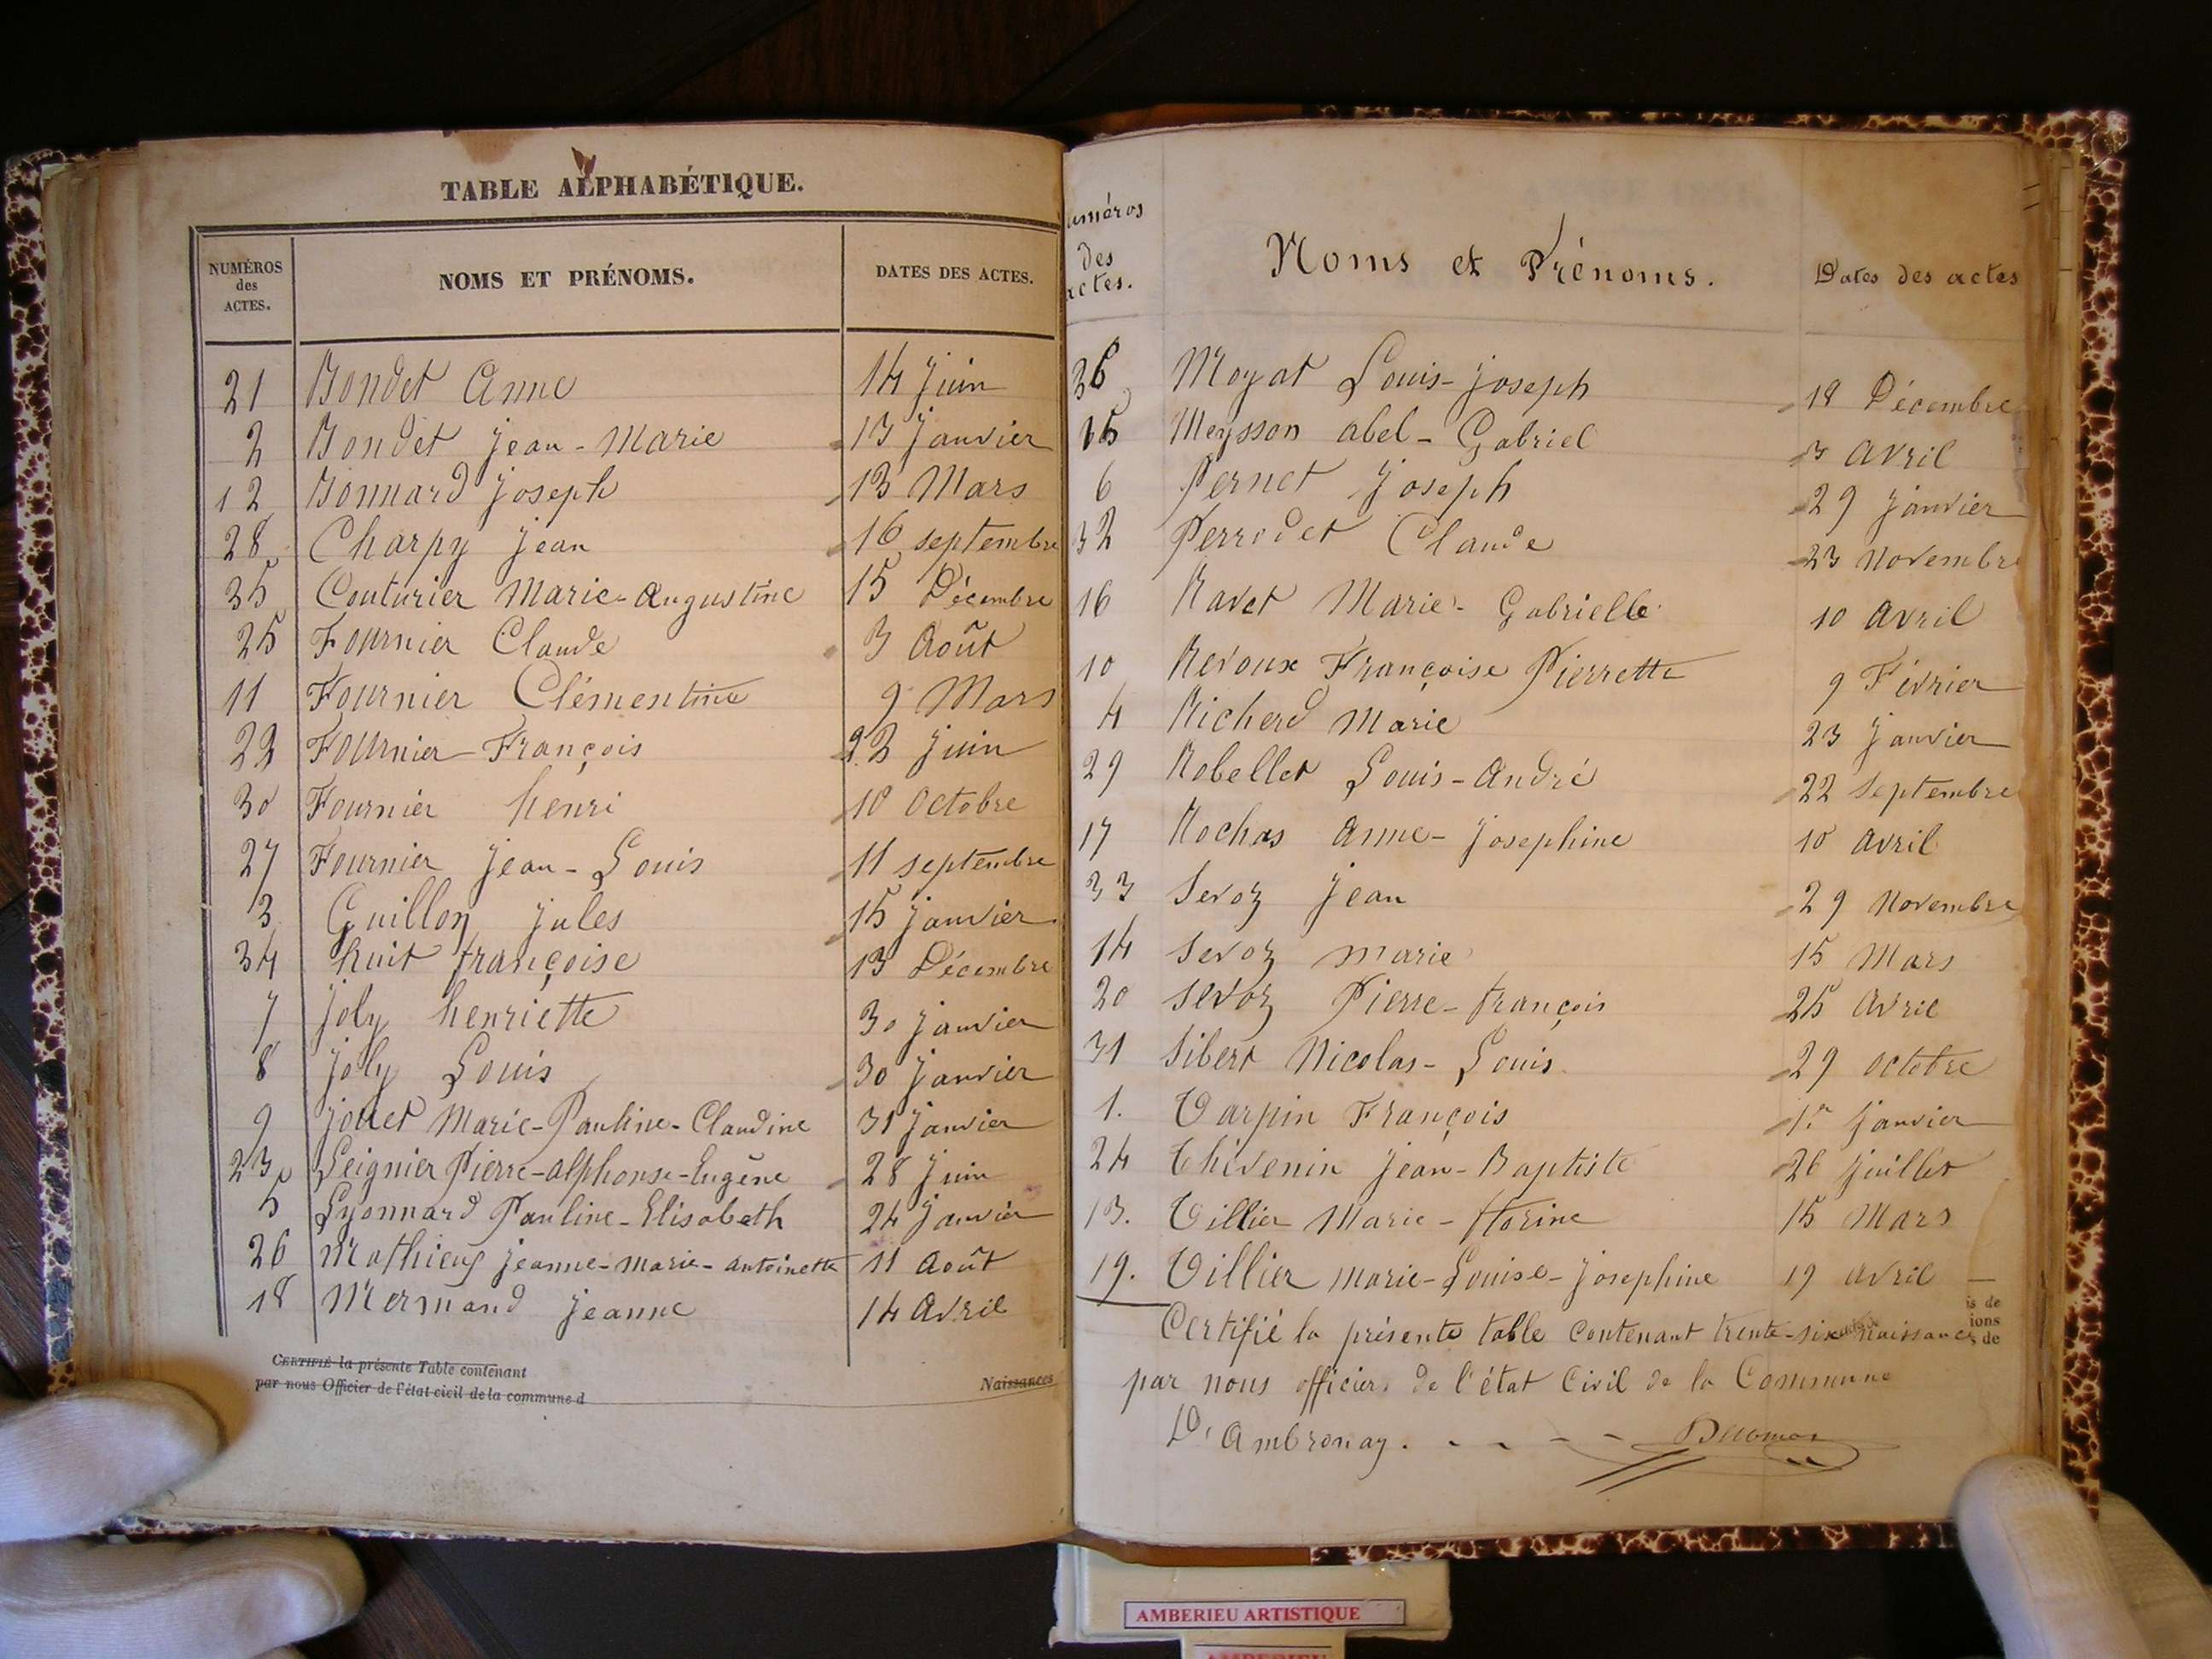 TABLE ALPHABÉTIQUE.
NUMÉROS des ACTES. NOMS ET PRÉNOMS. DATES DES ACTES.
21 Bondet Anne 14 Juin
2 Bondet Jean-Marie 13 Janvier
12 Bonnard Joseph 13 Mars
28 Charpy Jean 16 septembre
35 Couturier Marie-Augustine 15 Décembre
25 Fournier Claude 3 Août
11 Fournier Clémentine 9 Mars
22 Fournier François 22 Juin
30 Fournier henri 10 Octobre
27 Fournier Jean-Louis 11 septembre
3 Guillon Jules 15 Janvier
34 huit françoise 13 Décembre
7 Joly henriette 30 Janvier
8 Joly Louis 30 Janvier
9 Jouet Marie-Pauline-Claudine 31 Janvier
23 Leignier Pierre-alphonse-Eugène 28 Juin
5 Lyonnard Pauline-Elisabeth 24 Janvier
26 Mathieu Jeanne-Marie-antoinette 11 Août
18 Mermand Jeanne 14 Avril
CERTIFIÉ la présente Table contenant Naissances
par nous Officier de l'état civil de la commune d
uméros des actes. Noms et Prénoms. Dates des actes
36 Moyat Louis-Joseph 18 Décembre
15 Meysson abel-Gabriel 3 Avril
6 Pernet Joseph 29 Janvier
32 Perrodet Claude 23 Novembre
16 Ravet Marie-Gabrielle 10 Avril
10 Revoux Françoise Pierrette 9 Février
4 Richerd Marie 23 Janvier
29 Robellet Louis-André 22 Septembre
17 Rochas Anne-Josephine 10 Avril
33 Sevoz Jean 29 Novembre
14 Sevoz Marie 15 Mars
20 Sevoz Pierre-françois 25 Avril
31 Sibert Nicolas-Louis 29 Octobre
1. Tarpin François 1er Janvier
24 Thévenin Jean-Baptiste 26 Juillet
13. Tillier Marie-florine 15 Mars
19. Tillier Marie-Louise-Josephine 19 Avril
Certifié la présente table Contenant trente-six naissances
par nous officier de l'état Civil de la Commune
D'Ambronay.
is de
ions
s de
AMBERIEU ARTISTIQUE
AMBERIEU